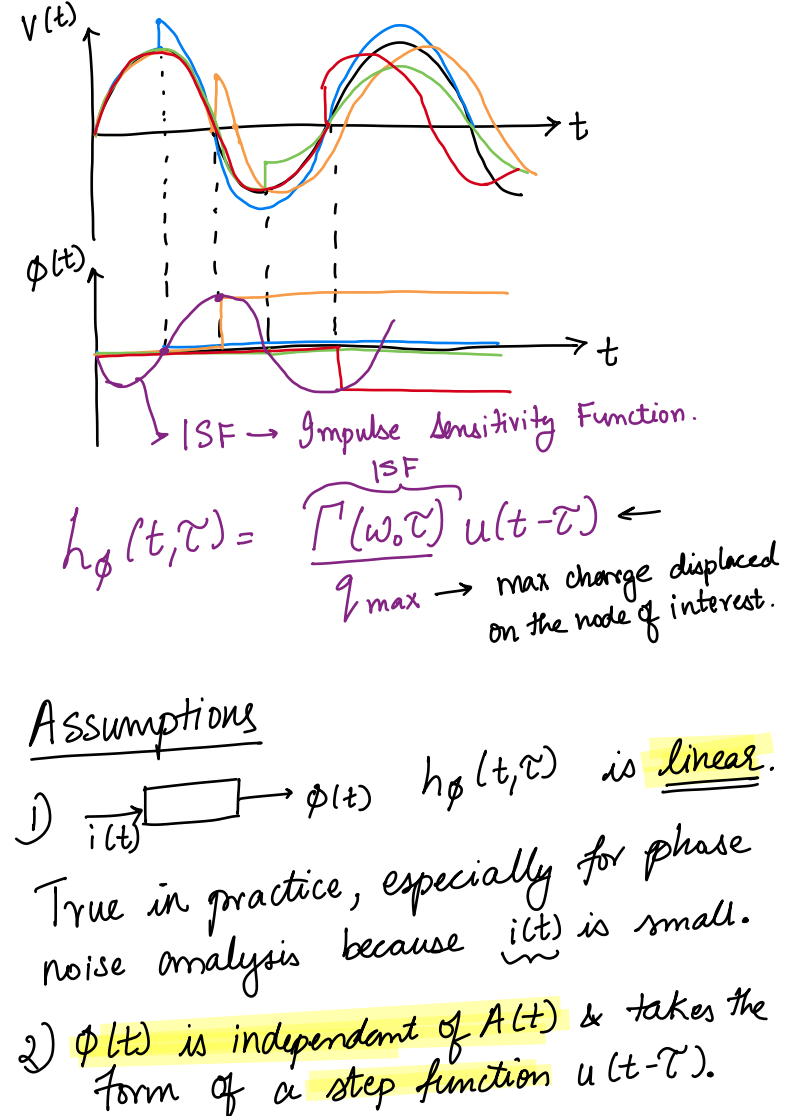 V(t)
t
φ(t)
t
ISF → Impulse Sensitivity Function.
ISF
hφ(t,τ) = Γ(ω₀τ) u(t-τ) ←
qmax → max charge displaced
on the node of interest.
Assumptions
1) i(t) φ(t) hφ(t,τ) is linear.
True in practice, especially for phase
noise analysis because i(t) is small.
2) φ(t) is independant of A(t) & takes the
form of a step function u(t-τ).